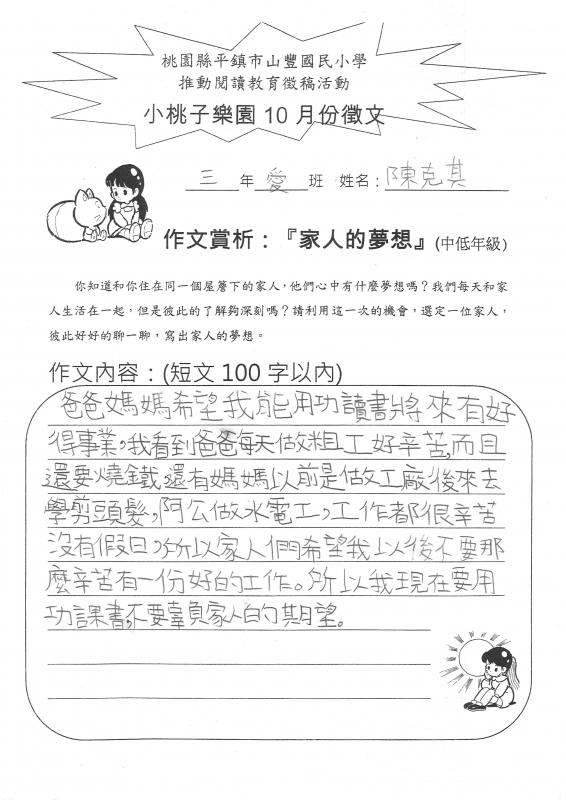 桃園縣平鎮市山豐國民小學
推動閱讀教育徵稿活動
小桃子樂園 10 月份徵文
三 年 愛 班 姓名：陳克其
作文賞析：『家人的夢想』(中低年級)
你知道和你住在同一個屋簷下的家人，他們心中有什麼夢想嗎？我們每天和家
人生活在一起，但是彼此的了解夠深刻嗎？請利用這一次的機會，選定一位家人，
彼此好好的聊一聊，寫出家人的夢想。
作文內容：(短文 100 字以內)
爸爸媽媽希望我能用功讀書將來有好
得事業，我看到爸爸每天做粗工好辛苦，而且
還要燒鐵，還有媽媽以前是做工廠後來去
學剪頭髮，阿公做水電工，工作都很辛苦
沒有假日，所以家人們希望我以後不要那
麼辛苦有一份好的工作。所以我現在要用
功課書，不要辜負家人的期望。